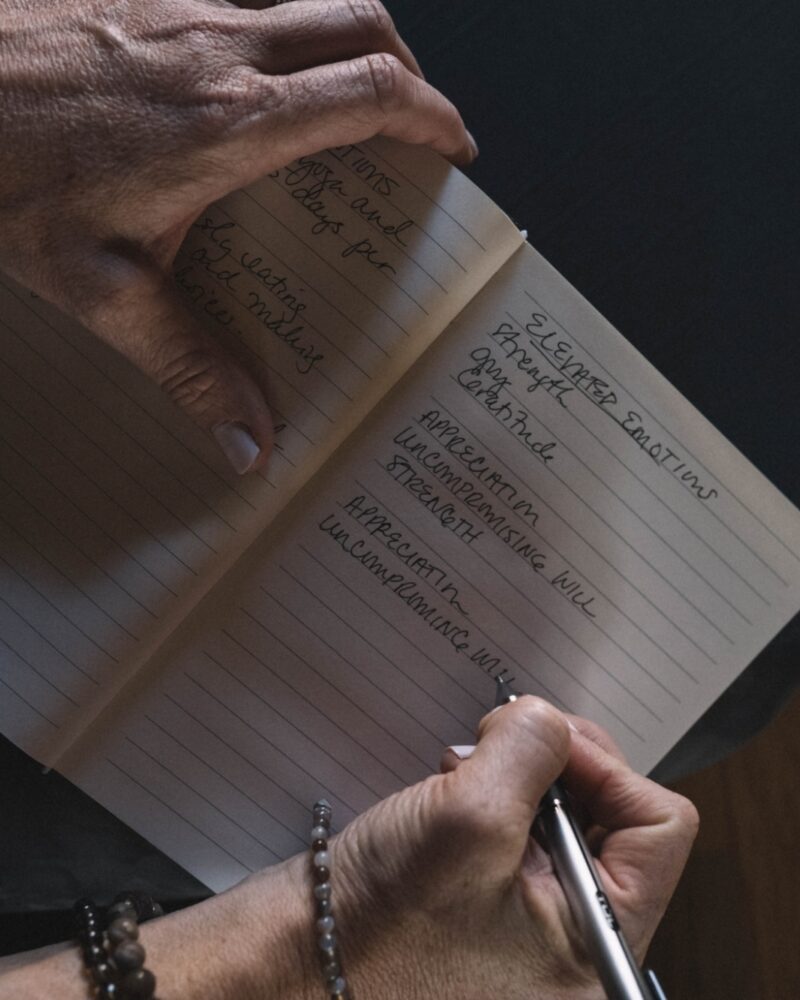 yoga and
days per
eating
and making
ELEVATED EMOTIONS
strength
Gratitude
APPRECIATION
UNCOMPROMISING WILL
STRENGTH
APPRECIATION
UNCOMPROMISING WILL